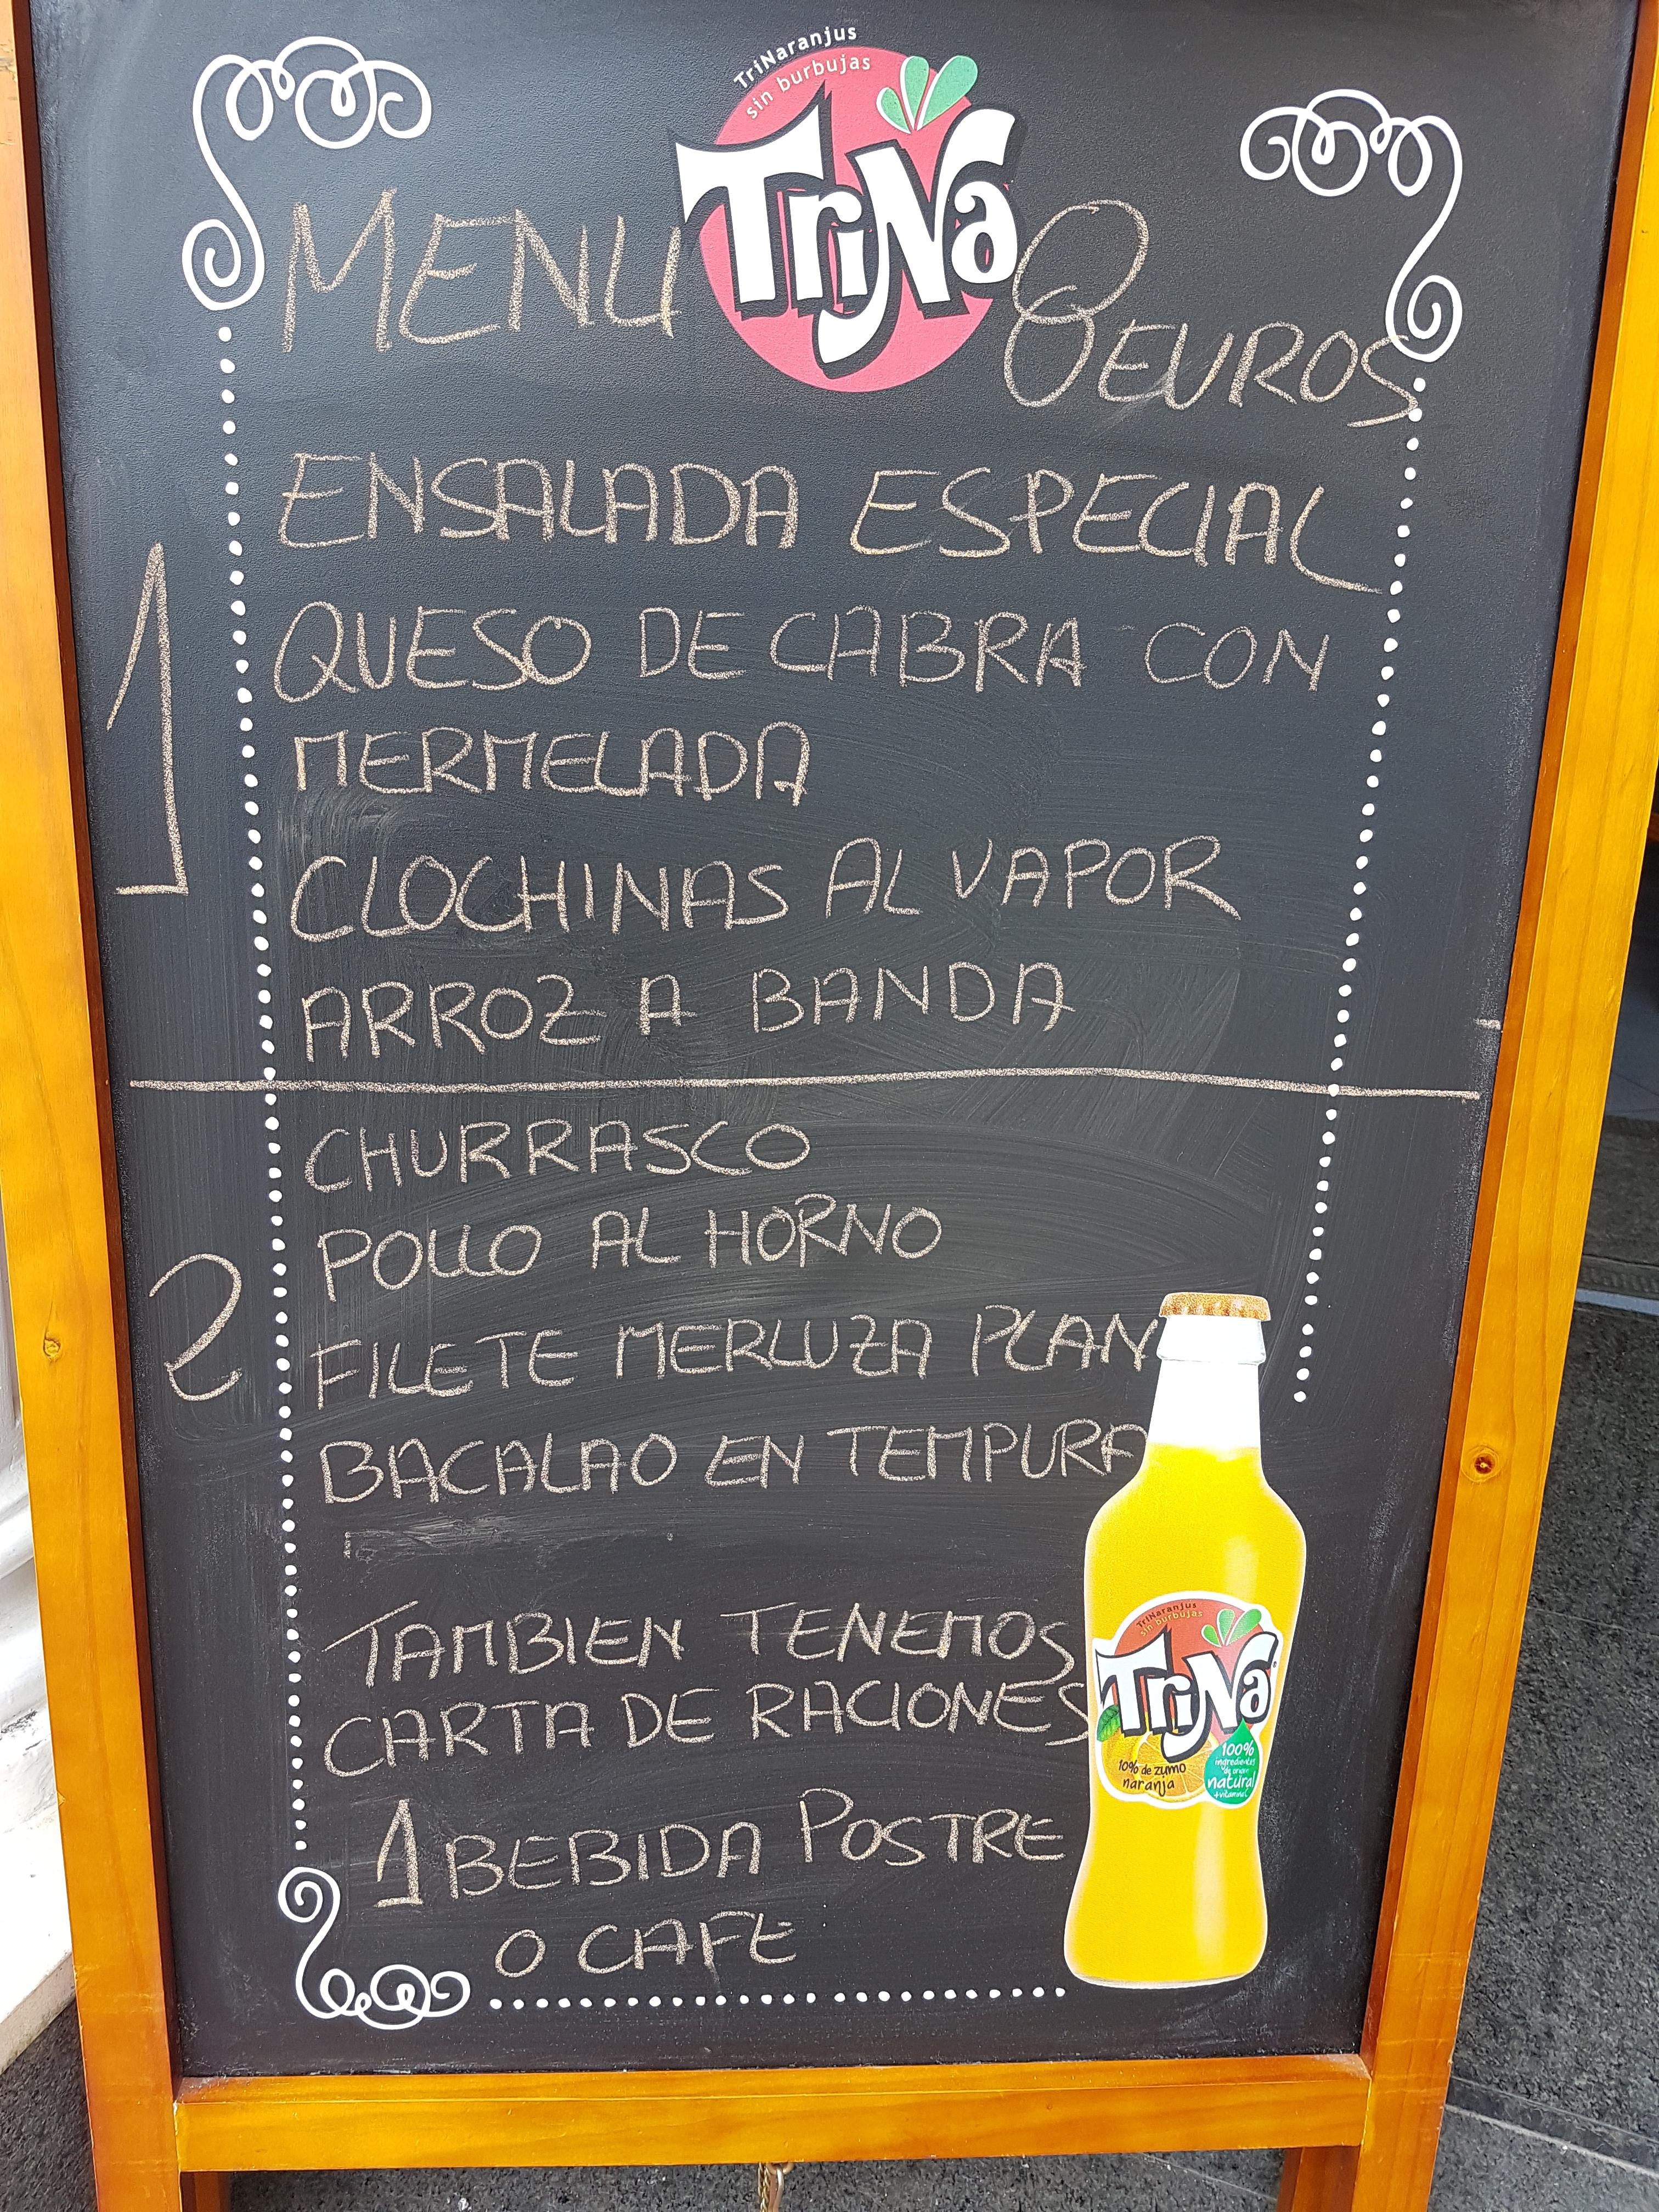 TriNaranjus
sin burbujas
TriNa
MENU 8 EUROS
1
ENSALADA ESPECIAL
QUESO DE CABRA CON
MERMELADA
CLOCHINAS AL VAPOR
ARROZ A BANDA
2
CHURRASCO
POLLO AL HORNO
FILETE MERLUZA PLAN
BACALAO EN TEMPURA
TAMBIEN TENEMOS
CARTA DE RACIONES
1 BEBIDA POSTRE
O CAFE
TriNaranjus
sin burbujas
TriNa
10% de zumo
naranja
100%
ingredientes
de origen
natural
+vitamina C